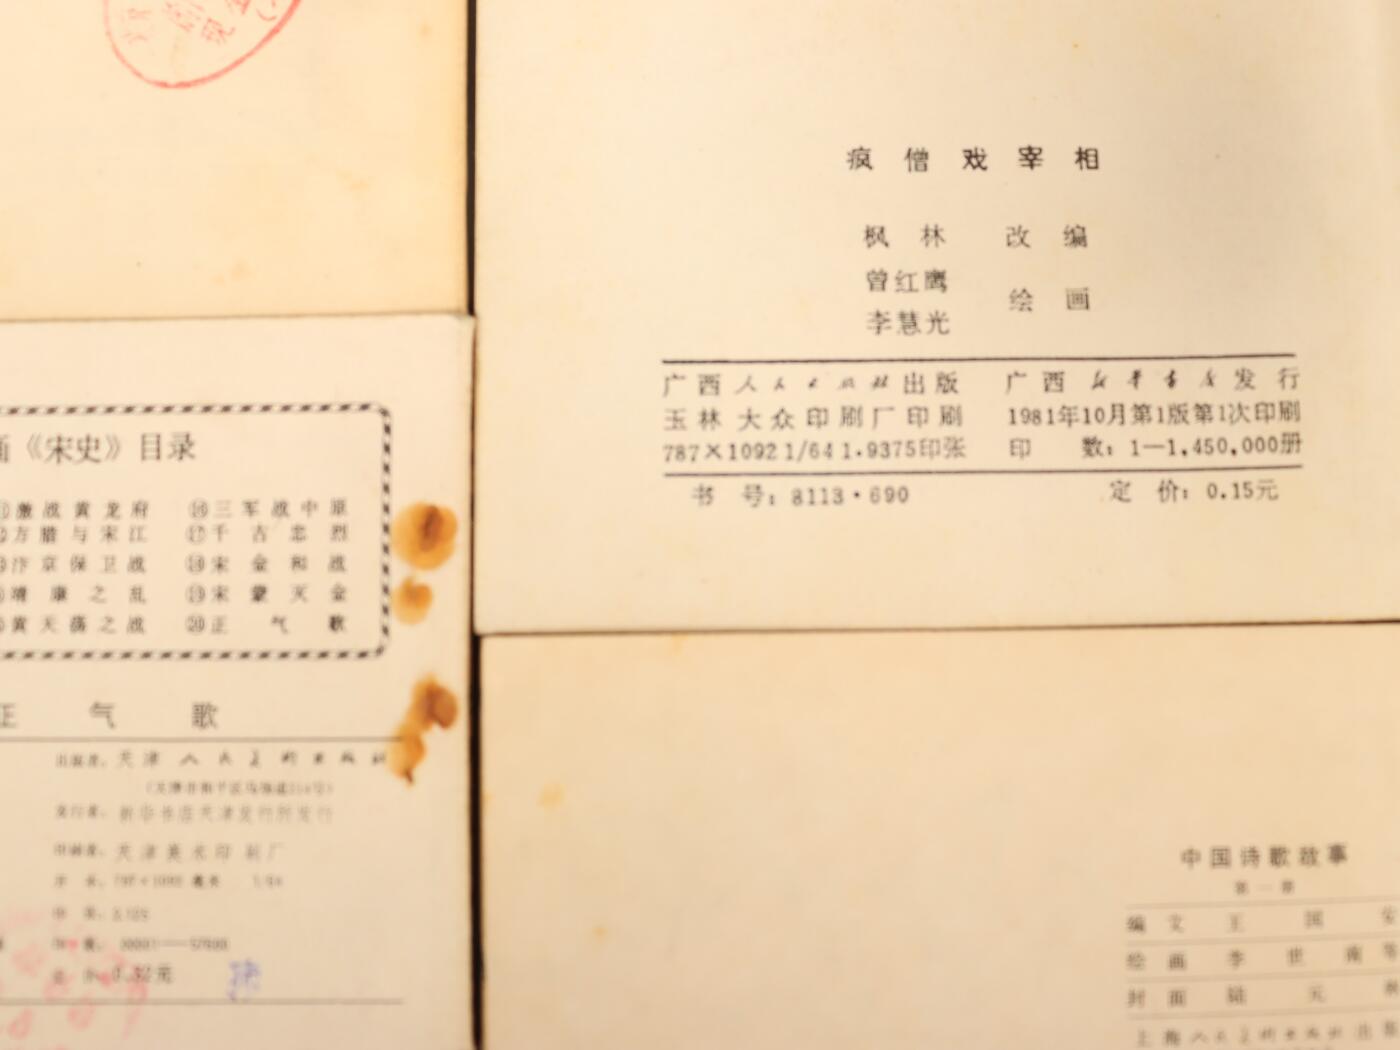 疯僧戏宰相
枫林 改编
曾红鹰
李慧光 绘画
广西人民出版社出版 广西新华书店发行
玉林大众印刷厂印刷 1981年10月第1版第1次印刷
787×1092 1/64 1.9375印张 印 数：1—1,450,000册
书 号：8113·690 定 价：0.15元
画《宋史》目录
激战黄龙府 ⑯三军战中原
方腊与宋江 ⑰千古忠烈
汴京保卫战 ⑱宋金和战
靖康之乱 ⑲宋蒙灭金
黄天荡之战 ⑳正气歌
正气歌
出版者：天津人民美术出版社
发行者：新华书店天津发行所发行
印刷者：天津美术印刷厂
开 本：787×1092 毫米 1/64
印 张：3.125
印 数：00001—57600
定 价：0.32元
中国诗歌故事
第一册
编文 王国安
绘画 李世南等
封面 陆元林
上海人民美术出版社出版